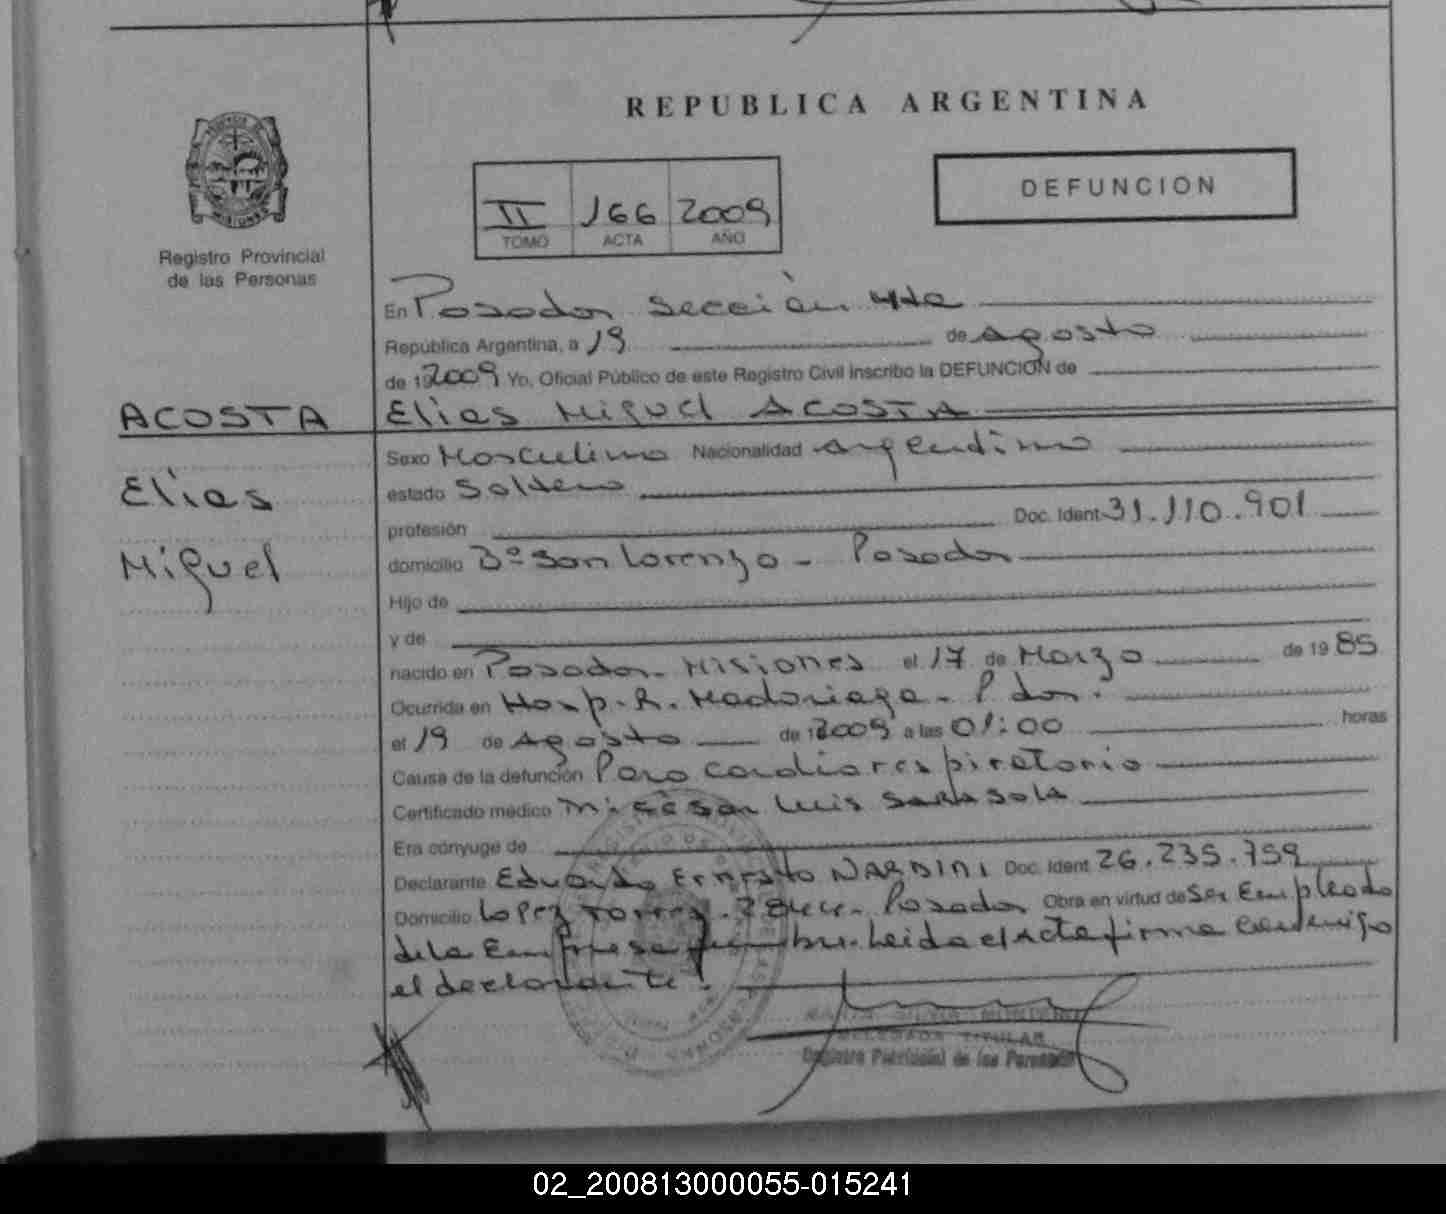 REPUBLICA ARGENTINA
DEFUNCION
II 166 2009
TOMO ACTA AÑO
PROVINCIA DE
MISIONES
Registro Provincial
de las Personas
En Posadas Sección 4ta
República Argentina, a 19 de Agosto
de 19 2009 Yo, Oficial Público de este Registro Civil inscribo la DEFUNCION de
ACOSTA
Elias Miguel ACOSTA
Elias
Miguel
Sexo Masculino Nacionalidad Argentino
estado Soltero
profesión Doc. Ident. 31.110.901
domicilio Bº San Lorenzo - Posadas
Hijo de
y de
nacido en Posadas - Misiones el 17 de Marzo de 19 85
Ocurrida en Hosp. R. Madariaga - P.das.
el 19 de Agosto de 1 2009 a las 01:00 horas
Causa de la defunción Paro cardiorespiratorio
Certificado médico Luis SARASOLA
Era cónyuge de
Declarante Eduardo Ernesto NARDINI Doc. Ident 26.235.759
Domicilio Lopez Torres - Posadas Obra en virtud de Ser Empleado
de la Empresa funebre. Leida el Acta firma conmigo
el declarante.
DELEGADA TITULAR
Registro Provincial de las Personas
02_200813000055-015241